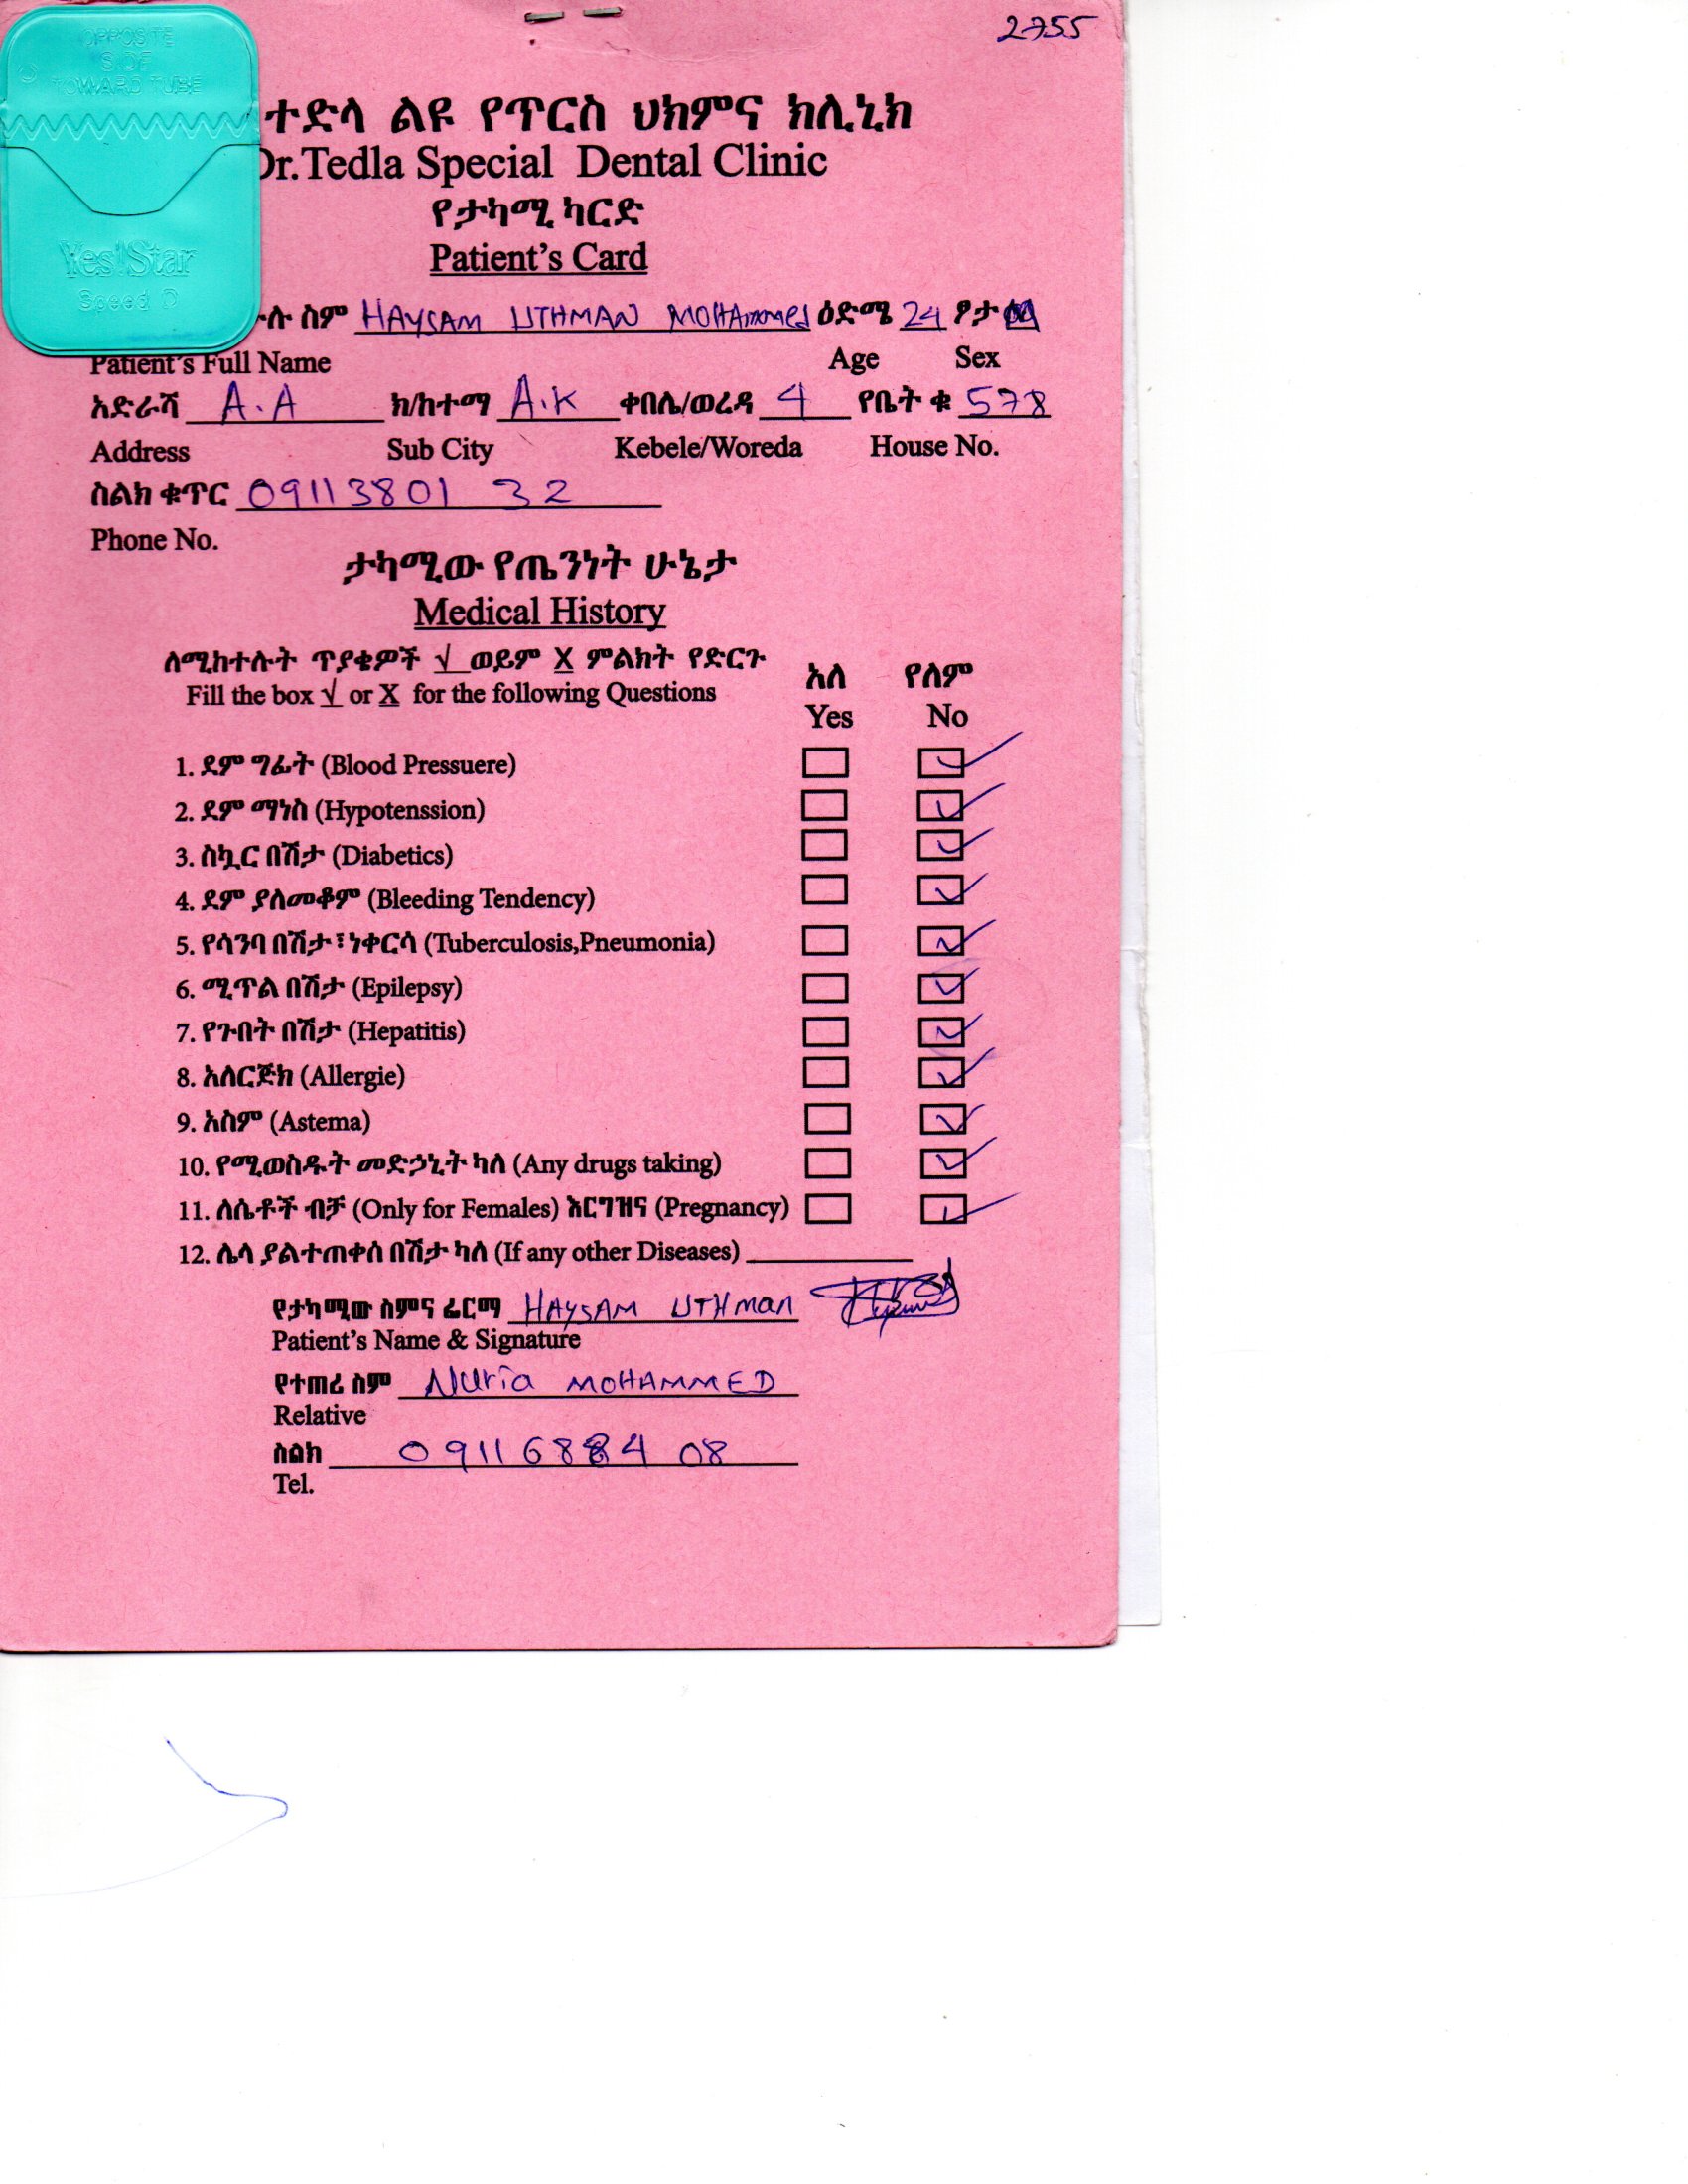 2755
OPPOSITE
SIDE
TOWARD TUBE
Yes!Star
Speed D
ተድላ ልዩ የጥርስ ህክምና ክሊኒክ
Dr.Tedla Special Dental Clinic
የታካሚ ካርድ
Patient's Card
ሉ ስም HAYSAM UTHMAN MOHAmmed ዕድሜ 24 ፆታ
Patient's Full Name Age Sex
አድራሻ A.A ክ/ከተማ A.K ቀበሌ/ወረዳ 4 የቤት ቁ 578
Address Sub City Kebele/Woreda House No.
ስልክ ቁጥር 09113801 32
Phone No.
ታካሚው የጤንነት ሁኔታ
Medical History
ለሚከተሉት ጥያቄዎች √ ወይም X ምልክት የድርጉ
Fill the box √ or X for the following Questions
አለ የለም
Yes No
1. ደም ግፊት (Blood Pressuere) ✓
2. ደም ማነስ (Hypotenssion) ✓
3. ስኳር በሽታ (Diabetics) ✓
4. ደም ያለመቆም (Bleeding Tendency) ✓
5. የሳንባ በሽታ፣ ነቀርሳ (Tuberculosis,Pneumonia) ✓
6. ሚጥል በሽታ (Epilepsy) ✓
7. የጉበት በሽታ (Hepatitis) ✓
8. አለርጅክ (Allergie) ✓
9. አስም (Astema) ✓
10. የሚወስዱት መድኃኒት ካለ (Any drugs taking) ✓
11. ለሴቶች ብቻ (Only for Females) እርግዝና (Pregnancy) ✓
12. ሌላ ያልተጠቀሰ በሽታ ካለ (If any other Diseases)
የታካሚው ስምና ፊርማ HAYSAM UTHman
Patient's Name & Signature
የተጠሪ ስም Nuria MOHAMMED
Relative
ስልክ 09116884 08
Tel.